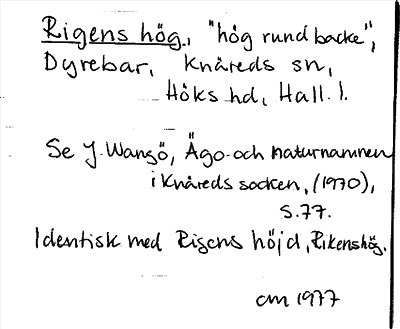 Rigens hög., "hög rund backe",
Dyrebar, Knäreds sn,
Höks hd, Hall. l.
Se J. Wangö, Ägo- och naturnamnen
i Knäreds socken, (1970),
s. 77.
Identisk med Rigens höjd, Rikenshög.
am 1977